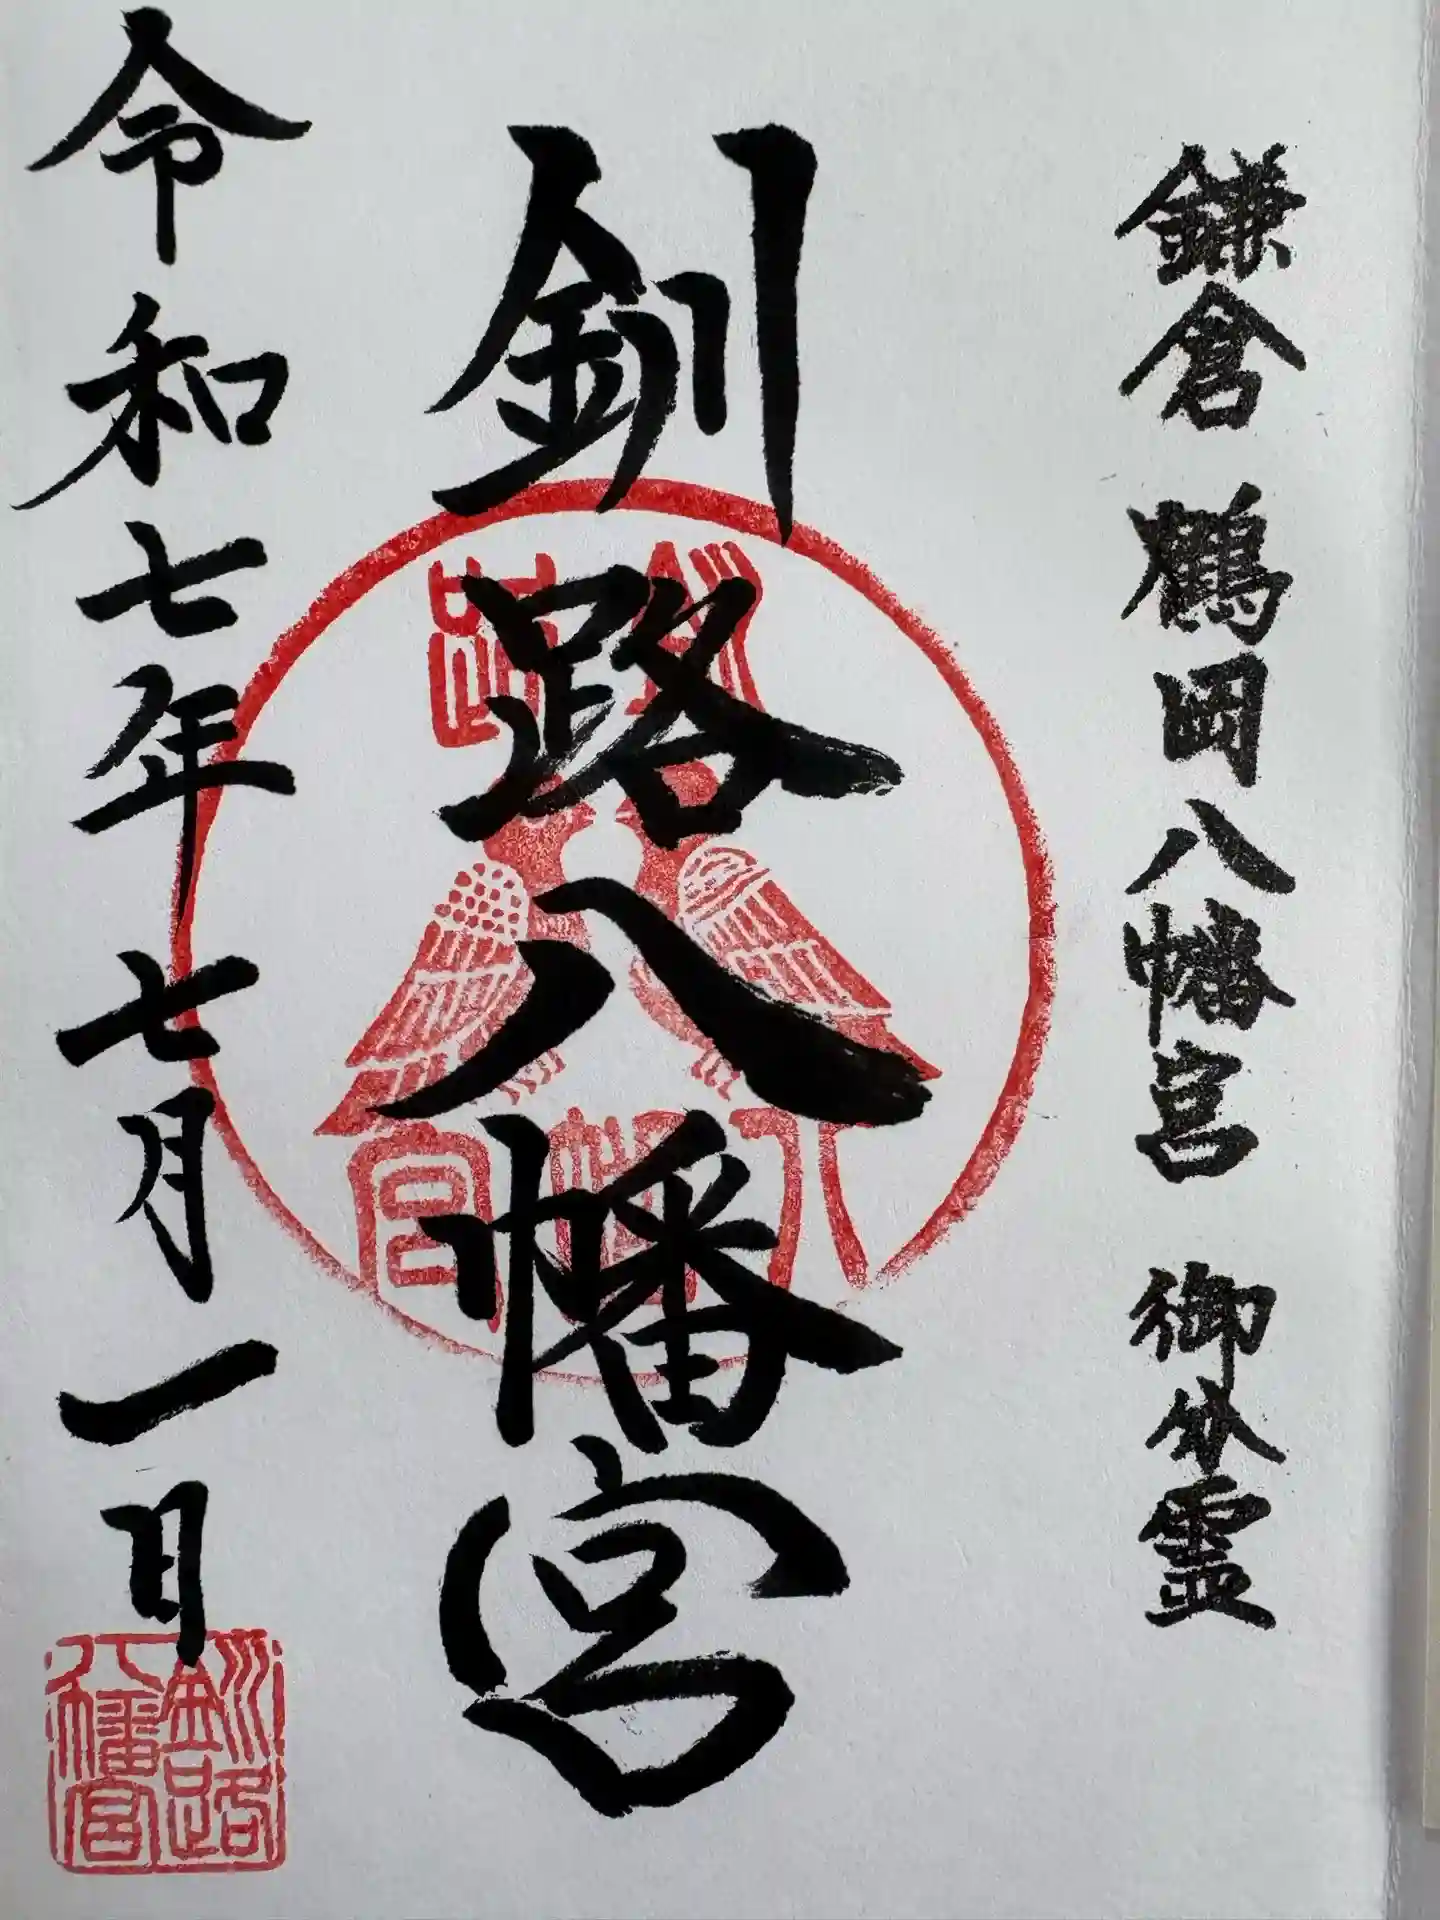 鎌倉 鶴岡八幡宮 御分霊
釧路八幡宮
令和七年七月一日
釧路
八幡宮
釧路
八幡宮